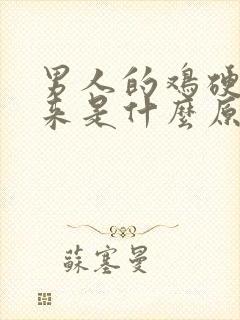 男人的鸡硬
来是什麼原
蘇塞曼